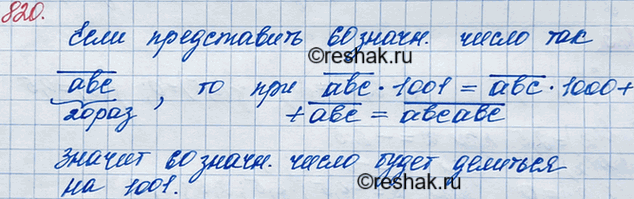 820.
Если представить 60значн. число так
abc, то при abc · 1001 = abc · 1000 +
20раз + abc = abcabc
©reshak.ru
Значит 60 значн. число будет делиться
на 1001.
©reshak.ru